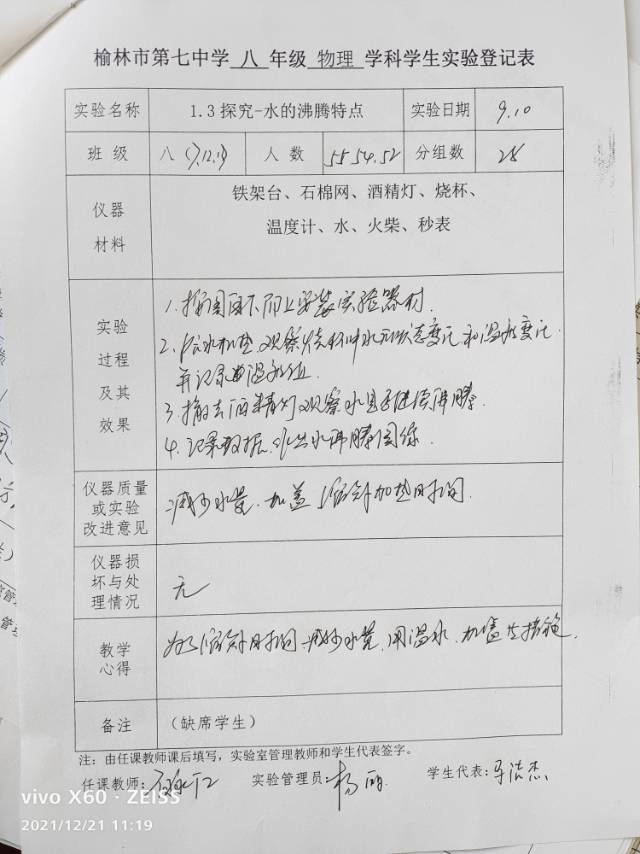 榆林市第七中学 八 年级 物理 学科学生实验登记表
实验名称 1.3 探究-水的沸腾特点 实验日期 9.10
班 级 八 人 数 55 54.52 分组数 28
仪器
材料
铁架台、石棉网、酒精灯、烧杯、
温度计、水、火柴、秒表
实验
过程
及其
效果
1.按图自下而上安装实验器材.
2.给水加热 观察烧杯中水 状态变化和温度变化
并记录 温度值
3.撤去酒精灯观察水是否继续沸腾.
4.记录数据.作出水沸腾图像.
仪器质量
或实验
改进意见
减少水量.加盖 缩短加热时间.
仪器损
坏与处
理情况
无
教学
心得
为了缩短时间 减少水量.用温水.加盖 措施.
备注 (缺席学生)
注:由任课教师课后填写,实验室管理教师和学生代表签字。
任课教师: 实验管理员:杨 学生代表:
vivo X60 · ZEISS
2021/12/21 11:19